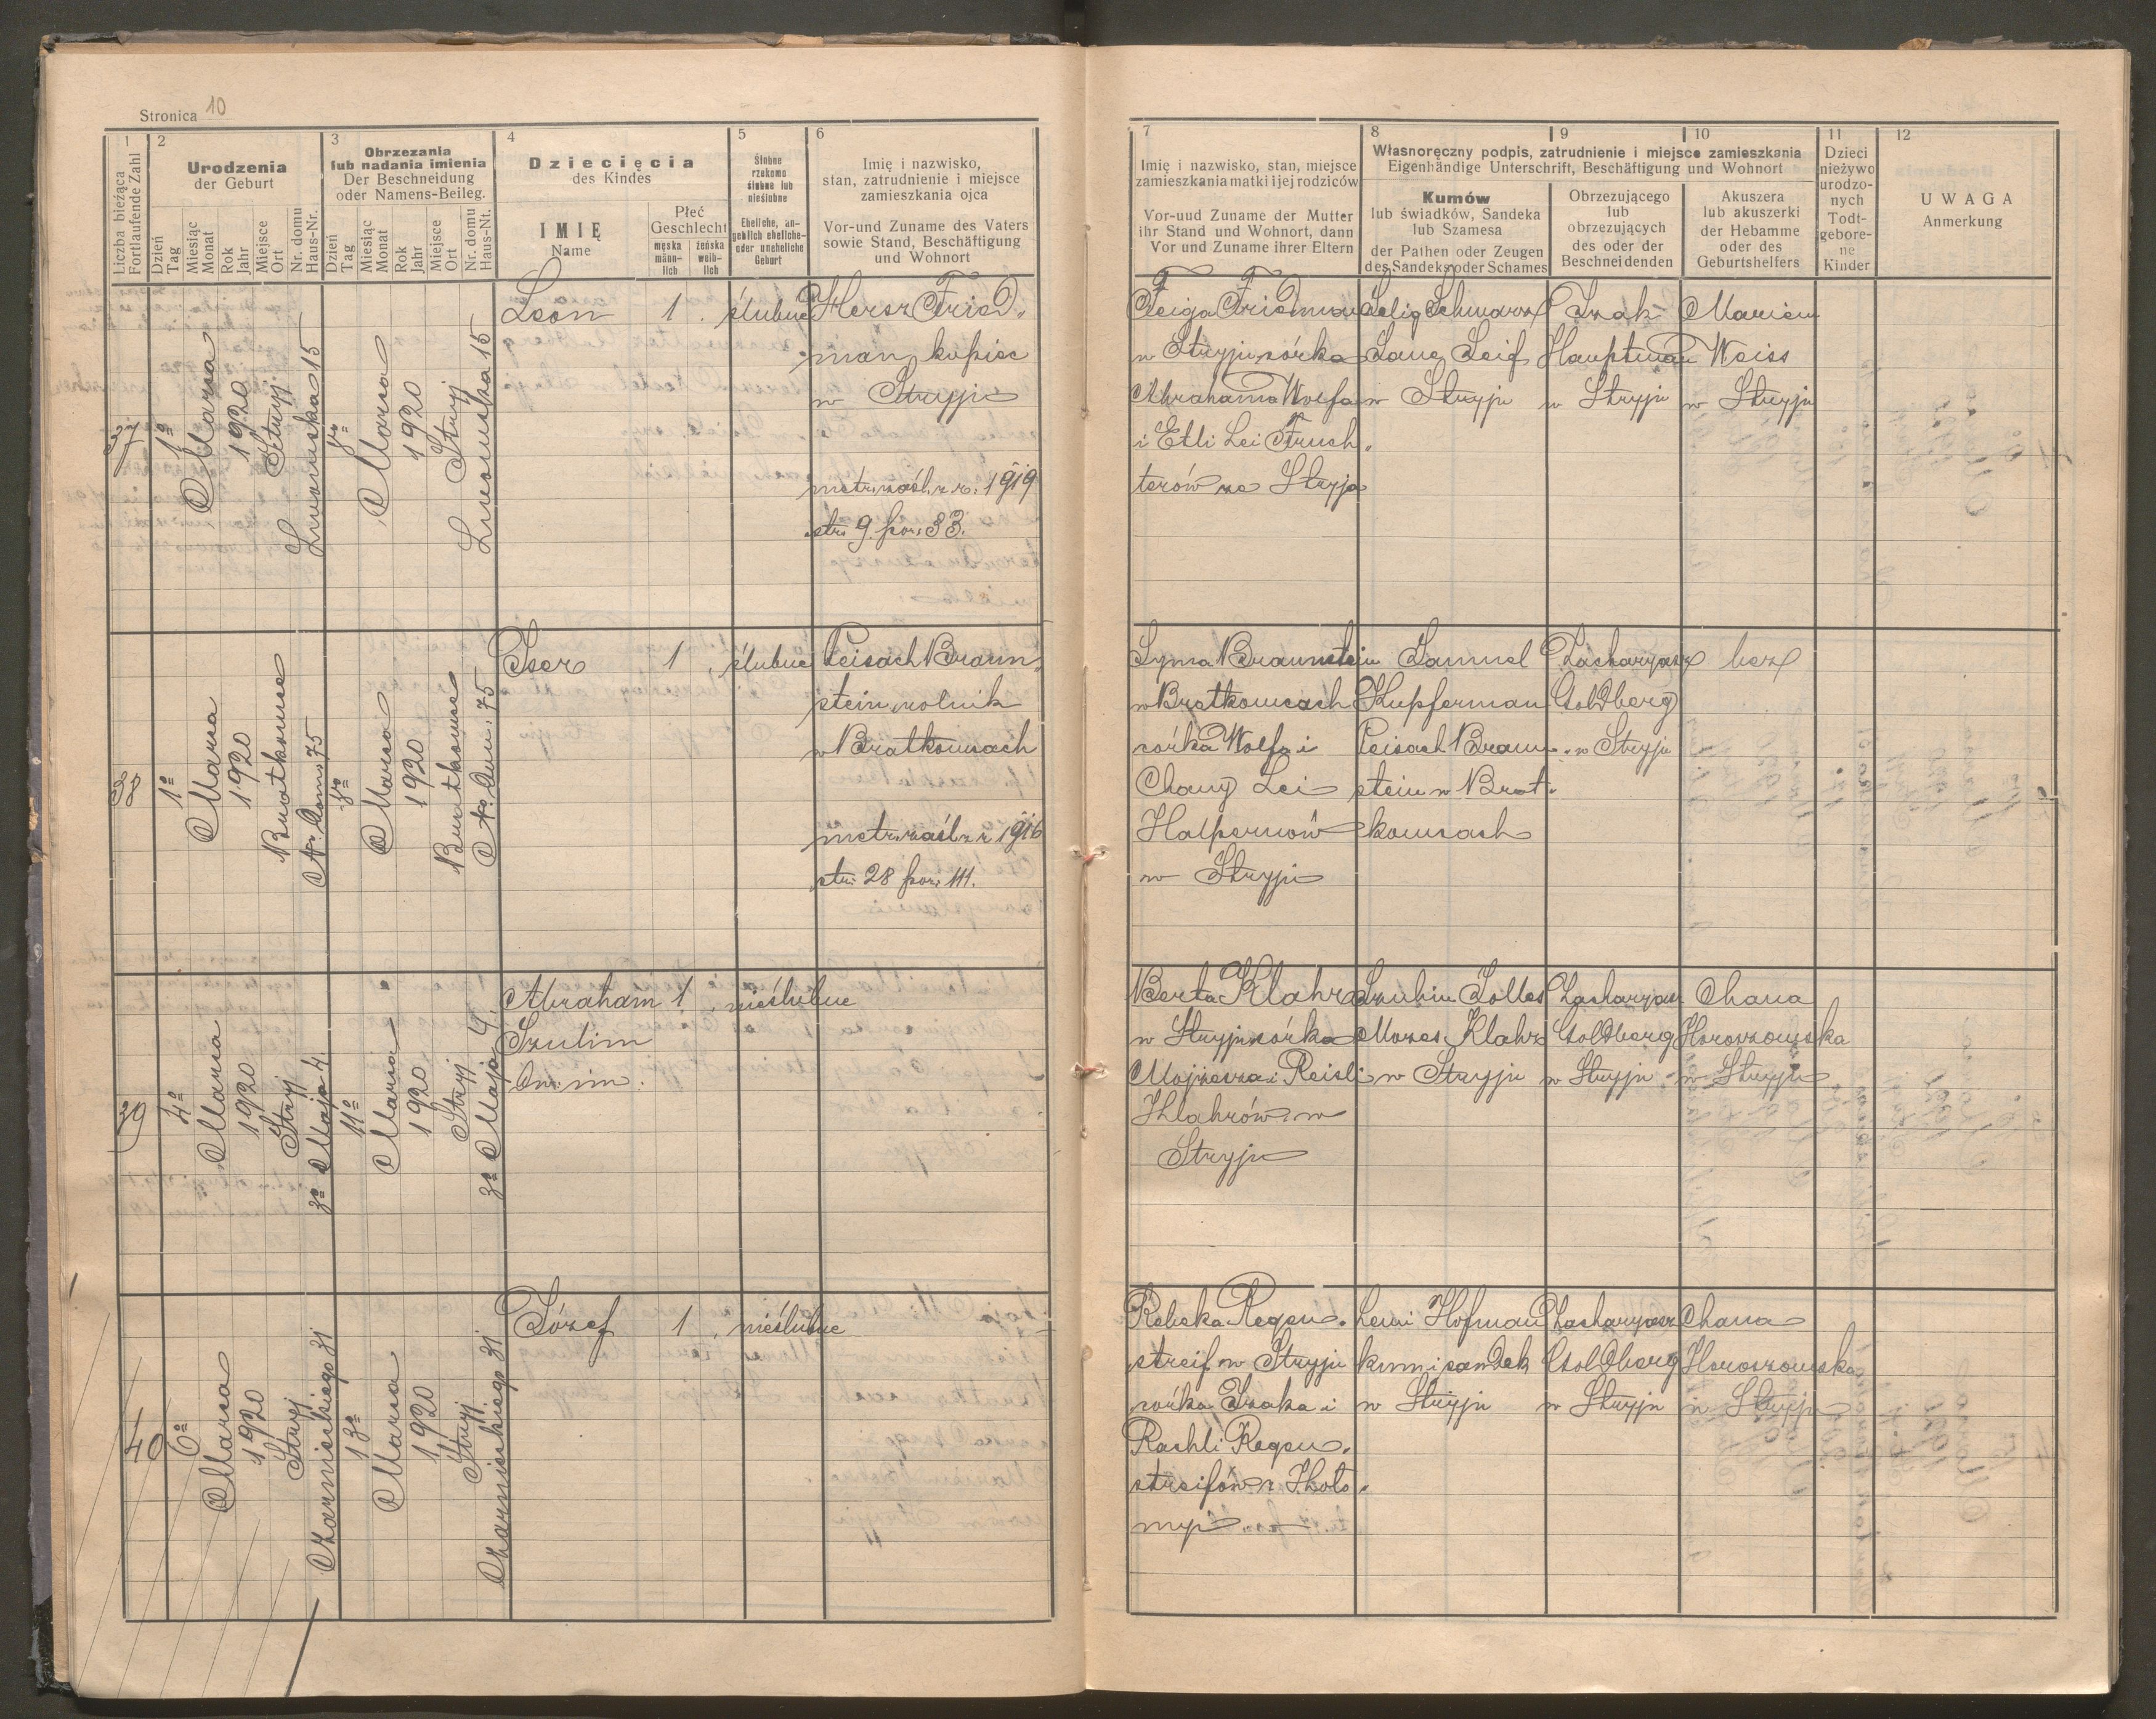 Stronica 10
1
Liczba bieżąca
Fortlaufende Zahl
2
Urodzenia
der Geburt
Dzień
Tag
Miesiąc
Monat
Rok
Jahr
Miejsce
Ort
Nr. domu
Haus-Nr.
3
Obrzezania
lub nadania imienia
Der Beschneidung
oder Namens-Beileg.
Dzień
Tag
Miesiąc
Monat
Rok
Jahr
Miejsce
Ort
Nr. domu
Haus-Nt.
4
Dziecięcia
des Kindes
IMIĘ
Name
Płeć
Geschlecht
męska
männ-
lich
żeńska
weib-
lich
5
Ślubne
rzekomo
ślubne lub
nieślubne
Eheliche, an-
geblich eheliche-
oder uneheliche
Geburt
6
Imię i nazwisko,
stan, zatrudnienie i miejsce
zamieszkania ojca
Vor-und Zuname des Vaters
sowie Stand, Beschäftigung
und Wohnort
7
Imię i nazwisko, stan, miejsce
zamieszkania matki i jej rodziców
Vor-uud Zuname der Mutter
ihr Stand und Wohnort, dann
Vor und Zuname ihrer Eltern
8
9
10
Własnoręczny podpis, zatrudnienie i miejsce zamieszkania
Eigenhändige Unterschrift, Beschäftigung und Wohnort
Kumów
lub świadków, Sandeka
lub Szamesa
der Pathen oder Zeugen
des Sandeks oder Schames
Obrzezującego
lub
obrzezujących
des oder der
Beschneidenden
Akuszera
lub akuszerki
der Hebamme
oder des
Geburtshelfers
11
Dzieci
nieżywo
urodzo-
nych
Todt-
gebore-
ne
Kinder
12
UWAGA
Anmerkung
37
1º
Marca
1920
Stryj
Lwowska 15
8º
Marca
1920
Stryj
Lwowska 15
Leon
1
ślubne
Hersz Fried-
man kupiec
w Stryju
metr. zaśl. z r. 1919
str. 9 poz. 33.
Feiga Friedman
w Stryju córka
Abrahama Wolfa
i Etli Lei Fruch-
terów ze Stryja
Selig Schwarz
Sane Leif
w Stryju
Izak
Hauptman
w Stryju
Mariem
Weiss
w Stryju
38
1º
Marca
1920
Bratkowce
Nr. dom. 75
8º
Marca
1920
Bratkowce
Nr. dom. 75
Iser
1
ślubne
Peisach Braun-
stein rolnik
w Bratkowcach
metr. zaśl. z r. 1916
str. 28 poz. 111.
Syma Braunstein
w Bratkowcach
córka Wolfa i
Chany Lei
Halpernów
w Stryju
Samuel
Kupferman
Peisach Braun-
stein w Brat-
kowcach
Zacharyasz
Goldberg
w Stryju
bez
39
4º
Marca
1920
Stryj
3º Maja 4
11º
Marca
1920
Stryj
3º Maja 4
Abraham
Szulim
dw. im.
1
nieślubne
Berta Klahr
w Stryju córka
Mojżesza i Reisli
Klahrów w
Stryju
Szulim Solles
Mozes Klahr
w Stryju
Zacharyasz
Goldberg
w Stryju
Chana
Horoszowska
w Stryju
40
6º
Marca
1920
Stryj
Czarnieckiego 31
13º
Marca
1920
Stryj
Czarnieckiego 31
Józef
1
nieślubne
Rebeka Regen-
streif w Stryju
córka Izaka i
Rachli Regen-
streifów z Koło-
myi
Lewi Hofman
kum i sandek
w Stryju
Zacharyasz
Goldberg
w Stryju
Chana
Horoszowska
w Stryju